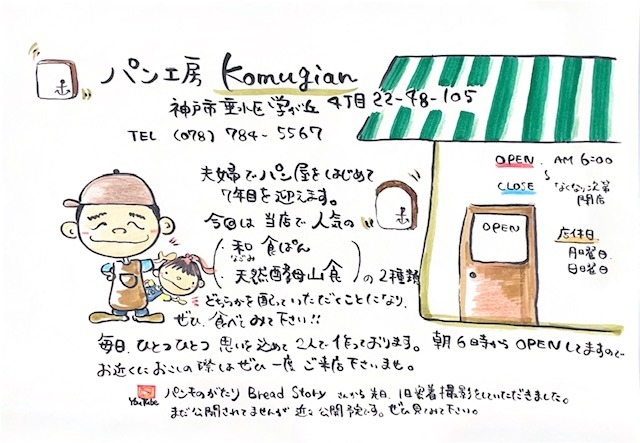 パン工房 Komugian
神戸市垂水区学が丘4丁目22-48-105
TEL (078) 784-5567
OPEN AM 6:00
〜
CLOSE なくなり次第
閉店
店休日
月曜日
日曜日
OPEN
夫婦でパン屋をはじめて
7年目を迎えます。
今回は当店で人気の
・和食ぱん
なごみ
・天然酵母山食
の2種類
どちらかを配っていただくことになり、
ぜひ、食べてみて下さい!!
毎日、ひとつひとつ思いを込めて2人で作っております。朝6時からOPENしてますので
お近くにおこしの際はぜひ一度ご来店下さいませ。
YouTube パンものがたり Bread Story さんから先日、1日密着撮影をしていただきました。
まだ公開されてませんが近々公開予定です。ぜひ見てみて下さい。